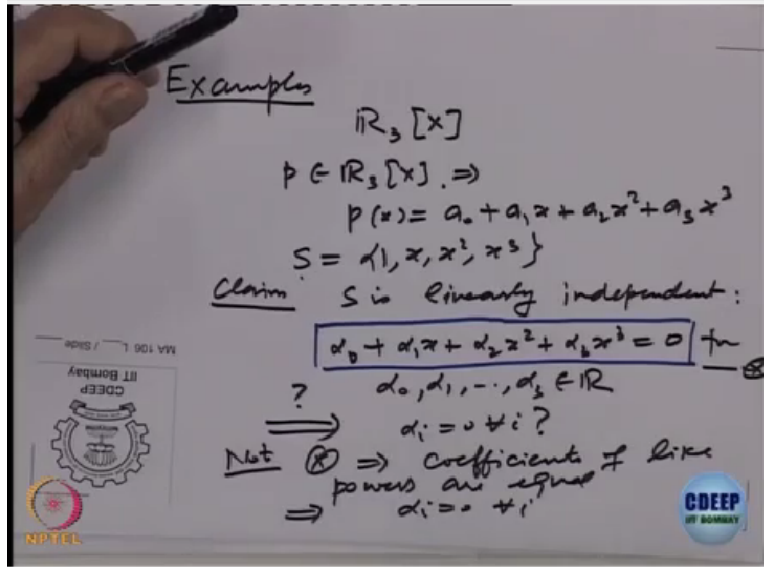 Examples
ℝ₃[x]
p ∈ ℝ₃[x] ⇒
p(x) = a₀ + a₁x + a₂x² + a₃x³
S = {1, x, x², x³}
Claim S is linearly independent:
α₀ + α₁x + α₂x² + α₃x³ = 0 for ⊛
α₀, α₁, ..., α₃ ∈ ℝ
? ⇒ αᵢ = 0 ∀ i ?
Not ⊛ ⇒ coefficients of like
powers are equal
⇒ αᵢ = 0 ∀ i
MA 106 L___ / Slide
CDEEP
IIT Bombay
NPTEL
CDEEP
IIT BOMBAY